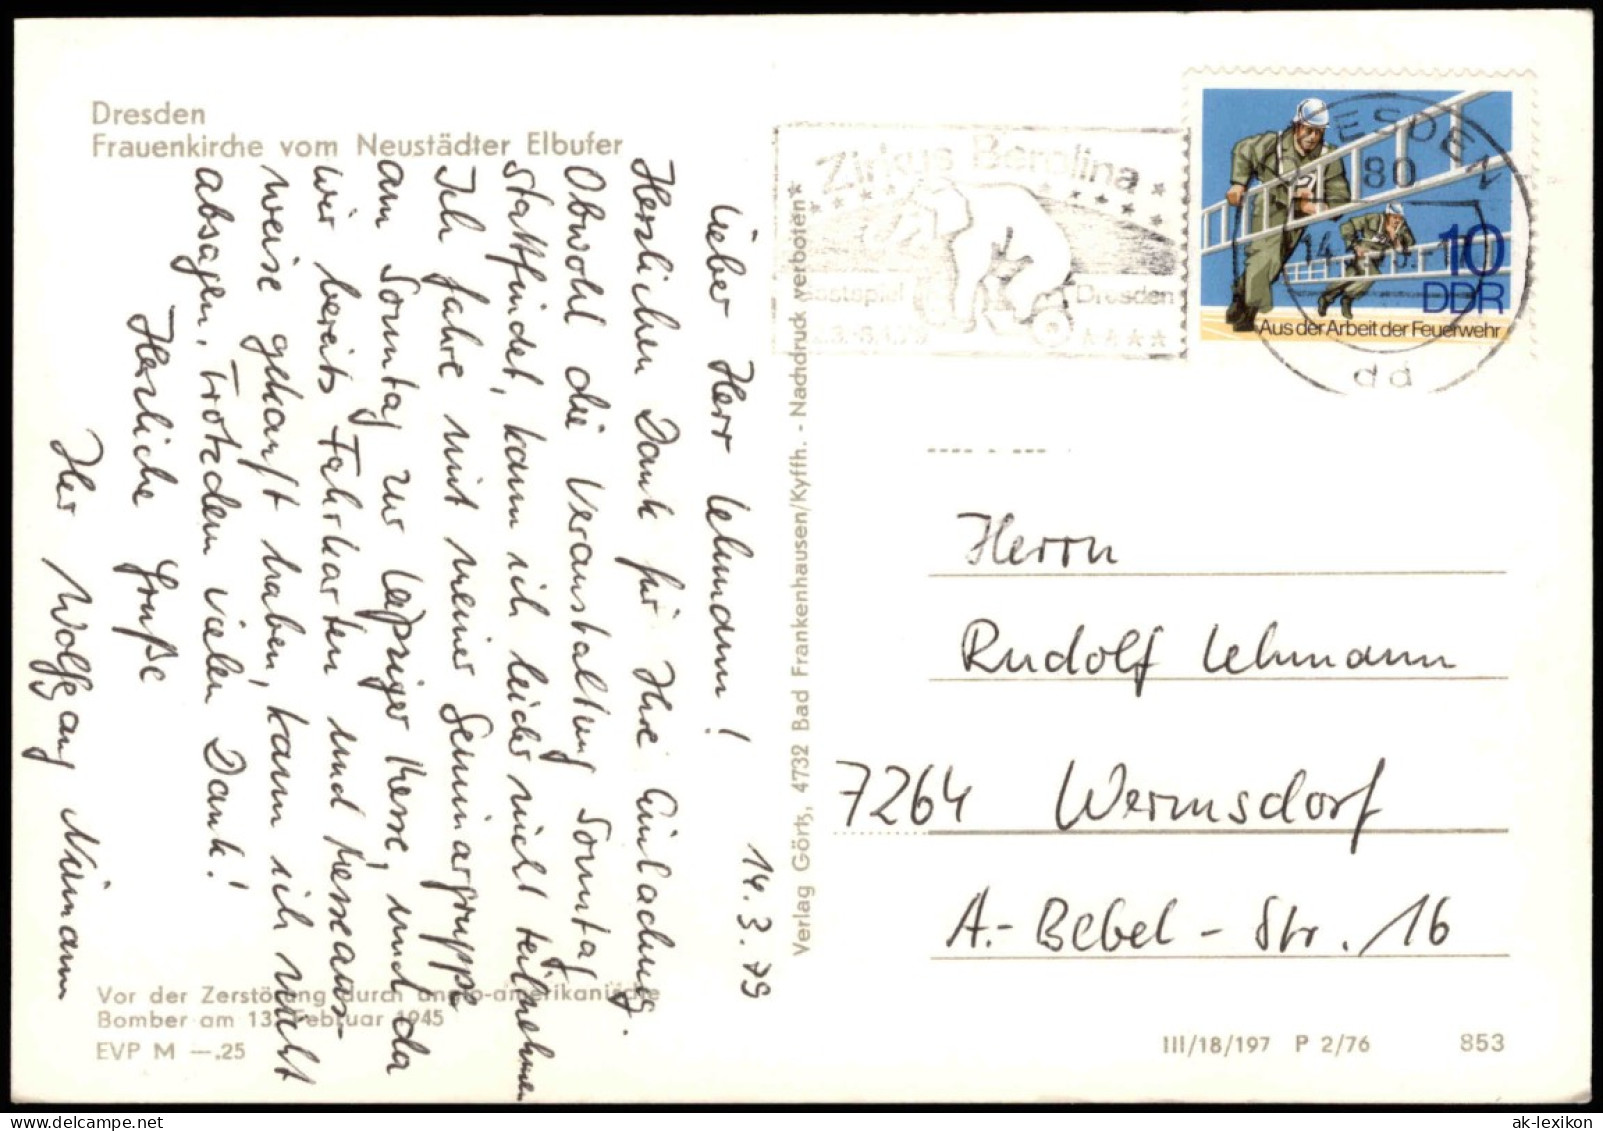 Dresden
Frauenkirche vom Neustädter Elbufer
14.3.79
Lieber Herr Lehmann!
Herzlichen Dank für Ihre Einladung.
Obwohl die Veranstaltung Sonntag
stattfindet, kann ich leider nicht teilnehmen
Ich fahre mit meiner Seminargruppe
am Sonntag zur Leipziger Messe, und da
wir bereits Fahrkarten und Messeaus-
weise gekauft haben, kann ich nicht
absagen. Trotzdem vielen Dank!
Herzliche Grüße
Ihr Wolfgang Nümann
Vor der Zerstörung durch anglo-amerikanische
Bomber am 13. Februar 1945
EVP M —.25
Verlag Görtz, 4732 Bad Frankenhausen/Kyffh. - Nachdruck verboten
Zirkus Berolina
Gastspiel Dresden
10
DDR
Aus der Arbeit der Feuerwehr
80
dd
Herrn
Rudolf Lehmann
7264 Wermsdorf
A.-Bebel-Str. 16
III/18/197 P 2/76 853
ak-lexikon